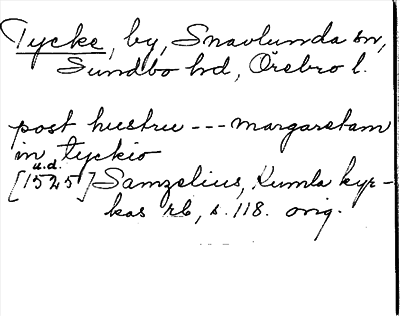 Tycke, by, Snavlunda sn,
Sundbo hd, Örebro l.
post hustru --- margaretam
in tyckio
u.d.
[1525] Samzelius, Kumla kyr-
kas rb, s. 118. orig.